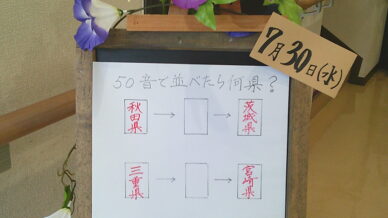 7月30日(水)
50音で並べたら何県？
秋田県 → → 茨城県
三重県 → → 宮崎県